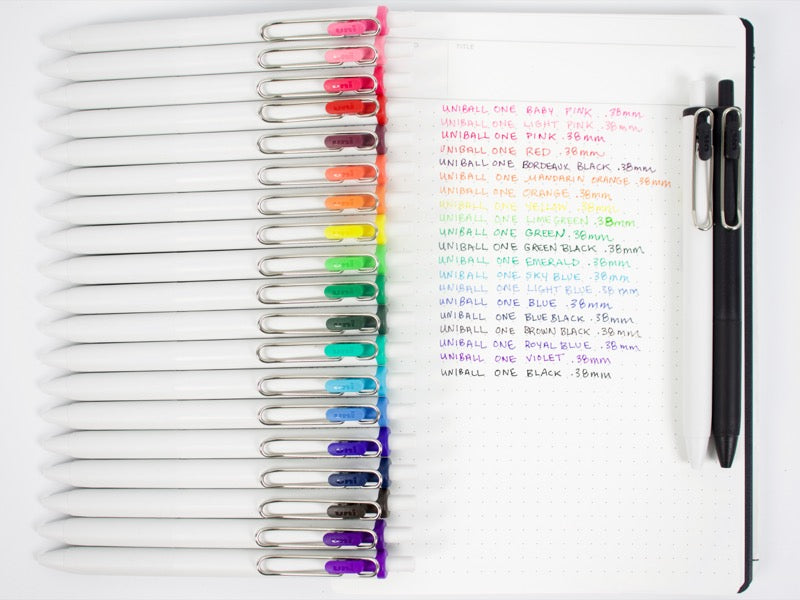 TITLE
UNIBALL ONE BABY PINK .38mm
UNIBALL ONE LIGHT PINK .38mm
UNIBALL ONE PINK .38mm
UNIBALL ONE RED .38mm
UNIBALL ONE BORDEAUX BLACK .38mm
UNIBALL ONE MANDARIN ORANGE .38mm
UNIBALL ONE ORANGE .38mm
UNIBALL ONE YELLOW .38mm
UNIBALL ONE LIMEGREEN .38mm
UNIBALL ONE GREEN .38mm
UNIBALL ONE GREEN BLACK .38mm
UNIBALL ONE EMERALD .38mm
UNIBALL ONE SKY BLUE .38mm
UNIBALL ONE LIGHT BLUE .38mm
UNIBALL ONE BLUE .38mm
UNIBALL ONE BLUE BLACK .38mm
UNIBALL ONE BROWN BLACK .38mm
UNIBALL ONE ROYAL BLUE .38mm
UNIBALL ONE VIOLET .38mm
UNIBALL ONE BLACK .38mm